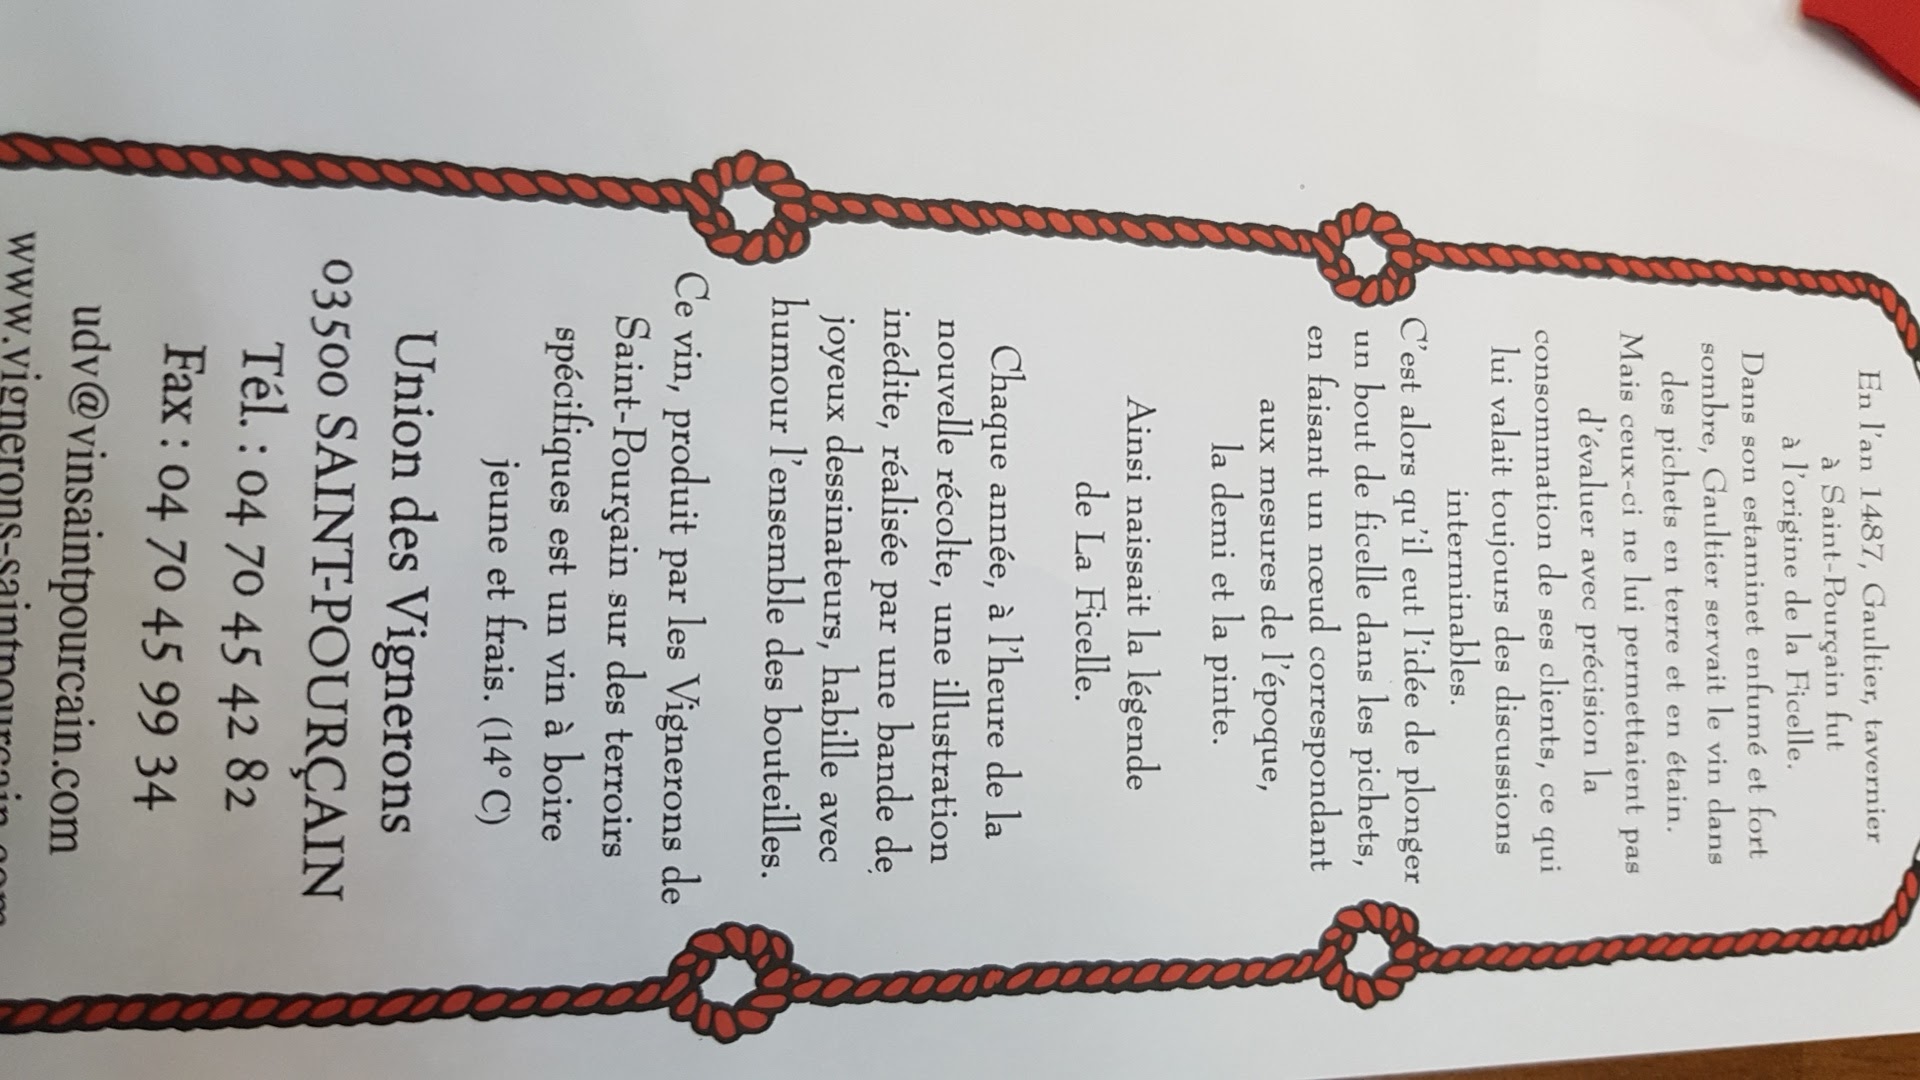 En l'an 1487, Gaultier, tavernier
à Saint-Pourçain fut
à l'origine de la Ficelle.
Dans son estaminet enfumé et fort
sombre, Gaultier servait le vin dans
des pichets en terre et en étain.
Mais ceux-ci ne lui permettaient pas
d'évaluer avec précision la
consommation de ses clients, ce qui
lui valait toujours des discussions
interminables.
C'est alors qu'il eut l'idée de plonger
un bout de ficelle dans les pichets,
en faisant un nœud correspondant
aux mesures de l'époque,
la demi et la pinte.
Ainsi naissait la légende
de La Ficelle.
Chaque année, à l'heure de la
nouvelle récolte, une illustration
inédite, réalisée par une bande de
joyeux dessinateurs, habille avec
humour l'ensemble des bouteilles.
Ce vin, produit par les Vignerons de
Saint-Pourçain sur des terroirs
spécifiques est un vin à boire
jeune et frais. (14° C)
Union des Vignerons
03500 SAINT-POURÇAIN
Tél. : 04 70 45 42 82
Fax : 04 70 45 99 34
udv@vinsaintpourcain.com
www.vignerons-saintpourcain.com